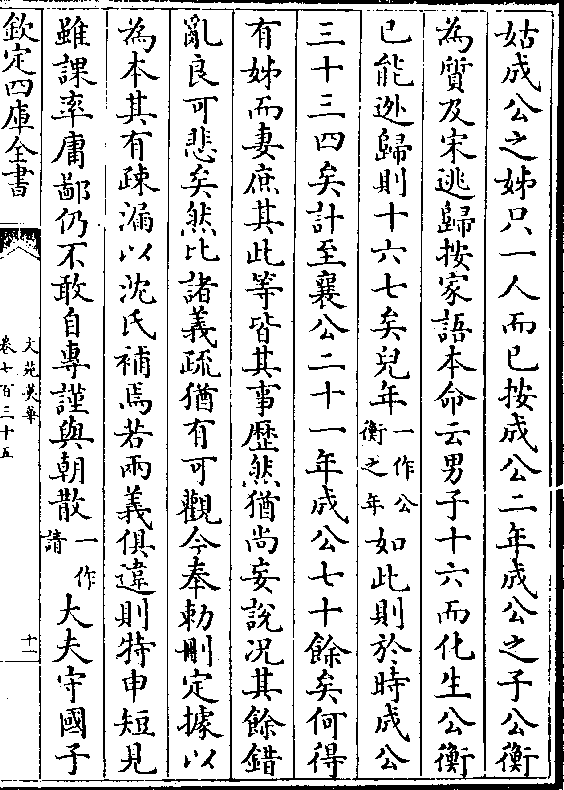 姑成公之姊只一人而已按成公二年成公之子公衡
為質及宋逃歸按家語本命云男子十六而化生公衡
已能逊歸則十六七矣兒年一作公衡之年如此則於時成公
三十三四矣計至襄公二十一年成公七十餘矣何得
有姊而妻庶其此等皆其事歴然猶尚妄說况其餘錯
亂良可悲矣然比諸義疏猶有可觀今奉勅刪定據以
為本其有疎漏以沈氏補焉若兩義俱違則特申短見
雖課率庸鄙仍不敢自專謹與朝散一作請大夫守國子
欽定四庫全書
文苑英華
卷七百三十五
十一